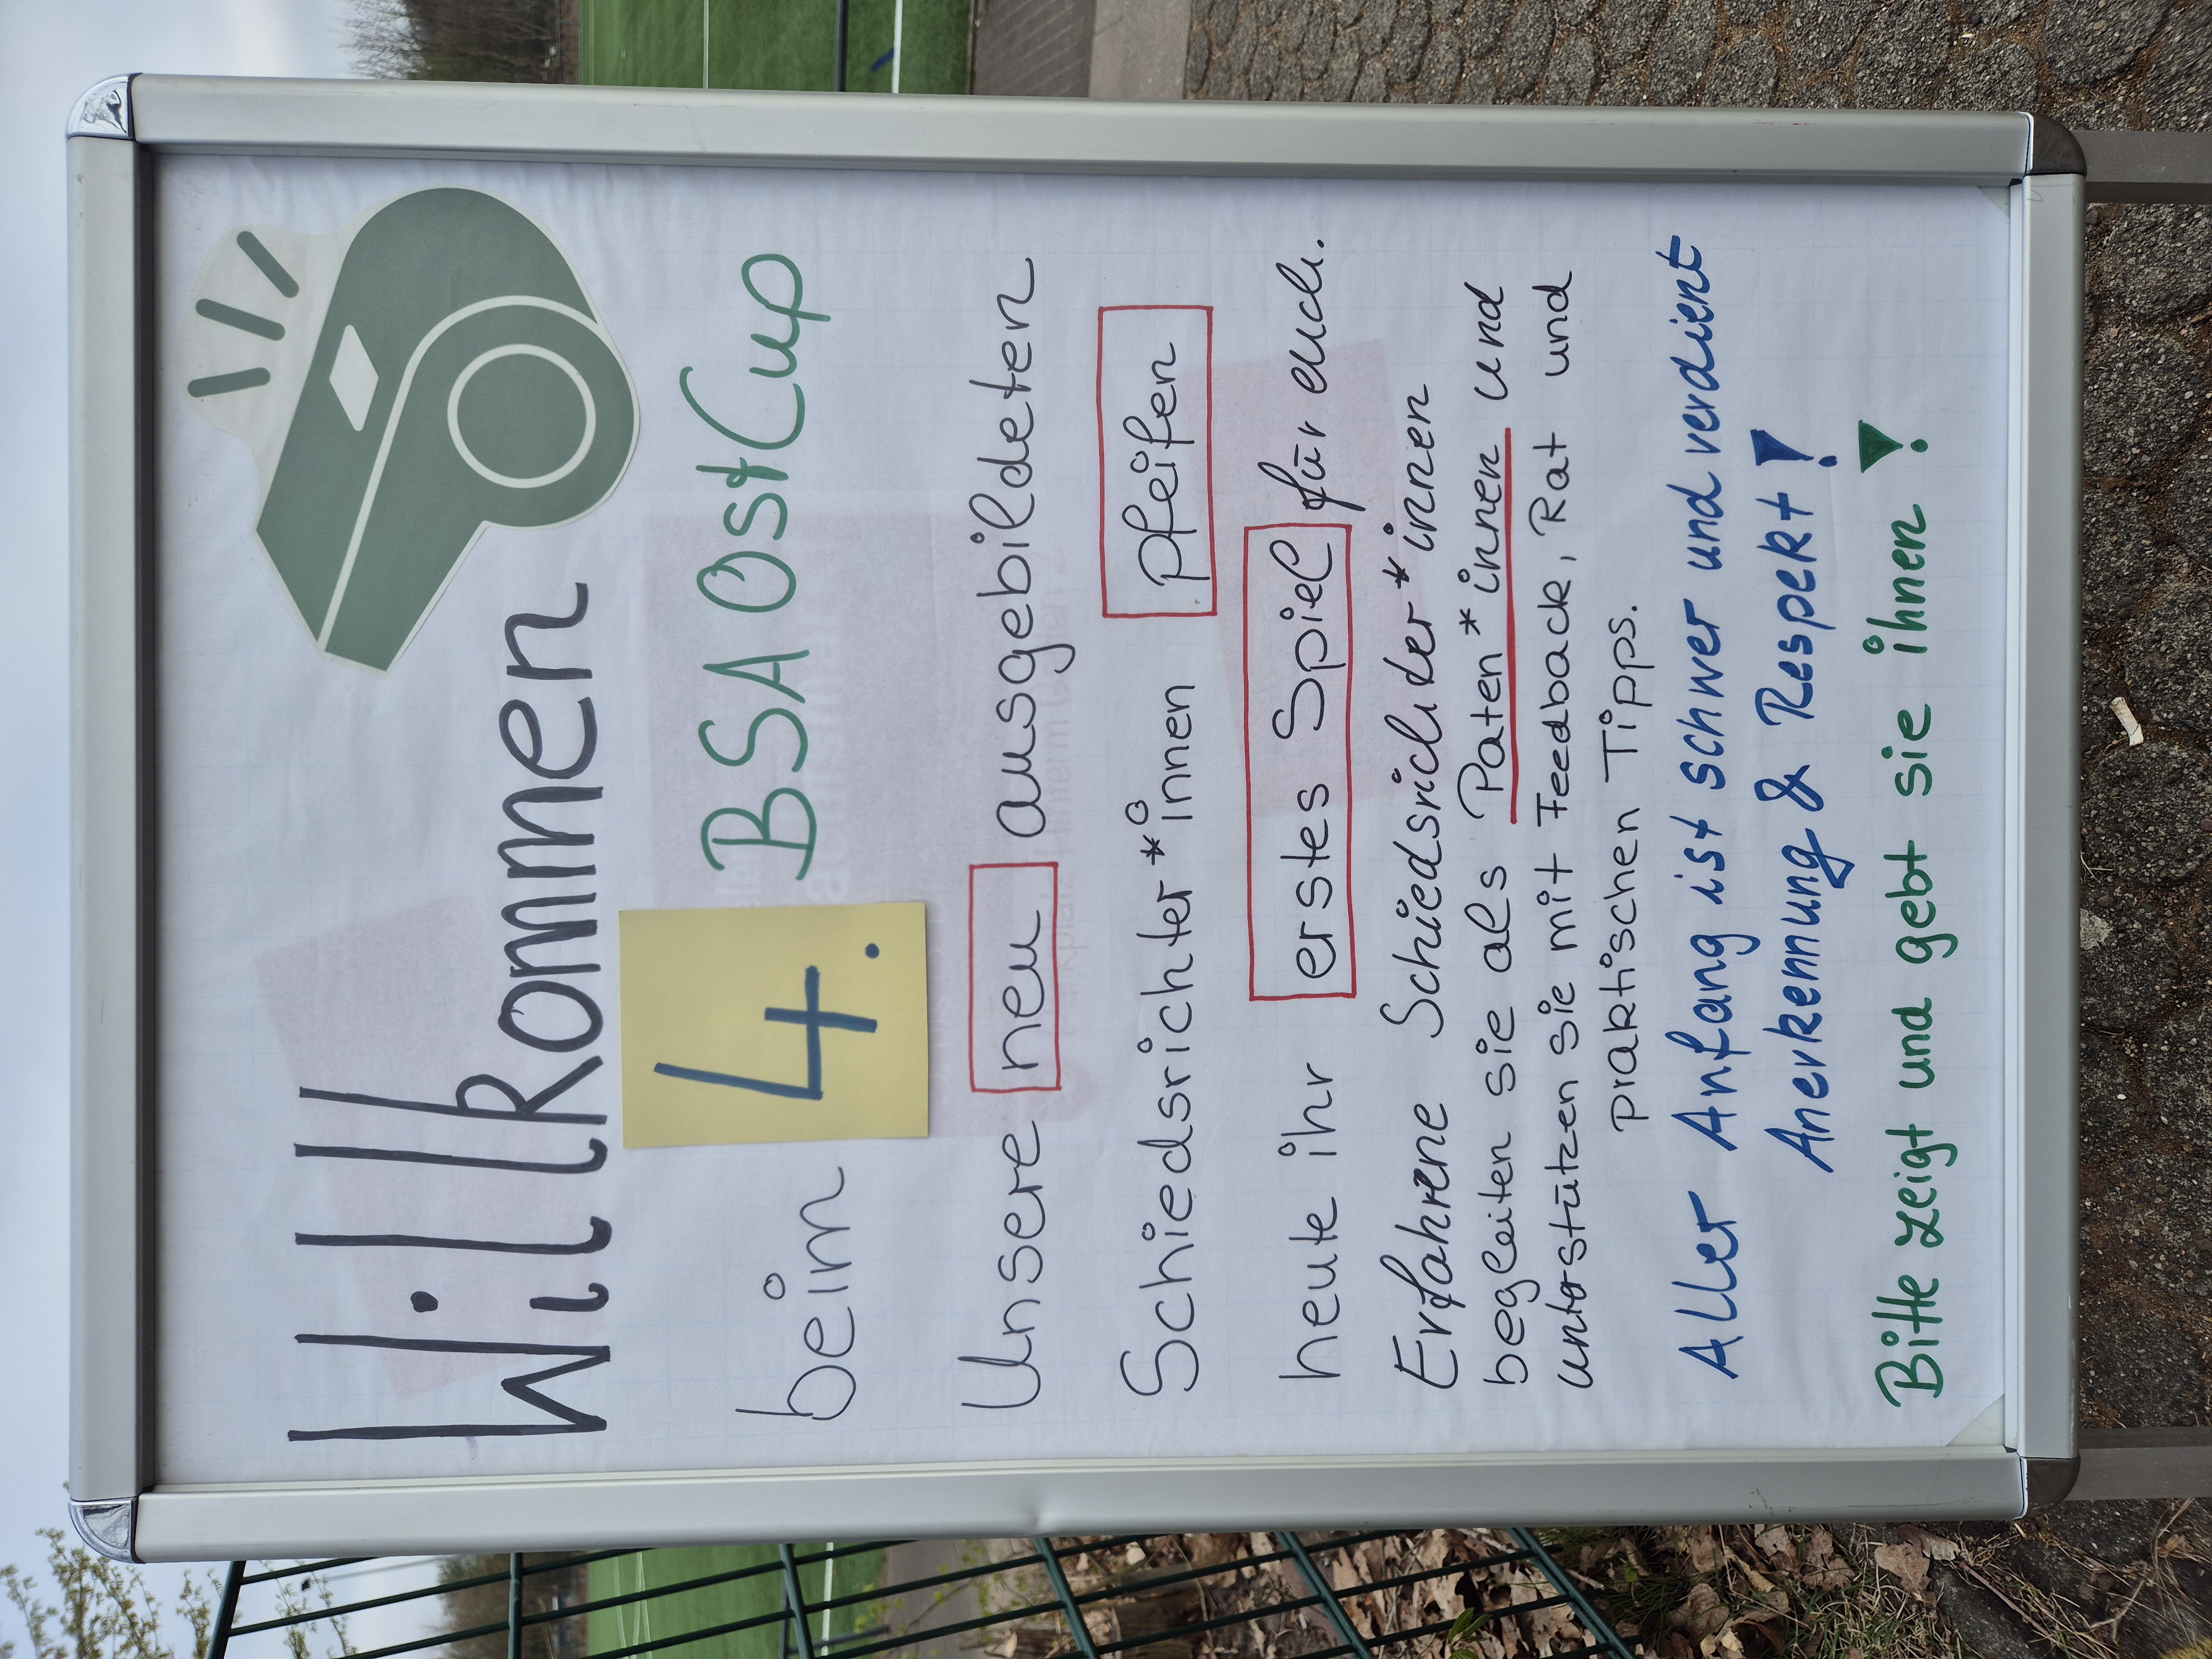 Willkommen
beim 4. BSA Ost Cup
Unsere neu ausgebildeten
Schiedsrichter*innen pfeifen
heute ihr erstes Spiel für euch.
Erfahrene Schiedsrichter*innen
begleiten sie als Paten*innen und
unterstützen sie mit Feedback, Rat und
praktischen Tipps.
Aller Anfang ist schwer und verdient
Anerkennung & Respekt!
Bitte zeigt und gebt sie ihnen!